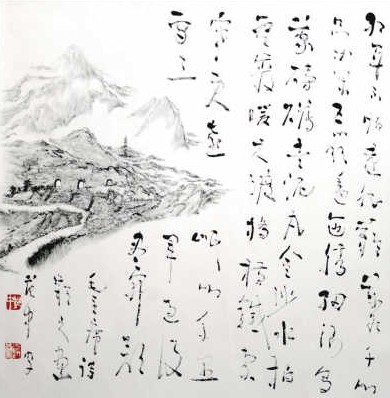 红军不怕远征难万水千山
只等闲五岭逶迤腾细浪乌
蒙磅礴走泥丸金沙水拍
云崖暖大渡桥横铁索
寒更喜岷山千里
雪三军过后
尽开颜
毛主席诗